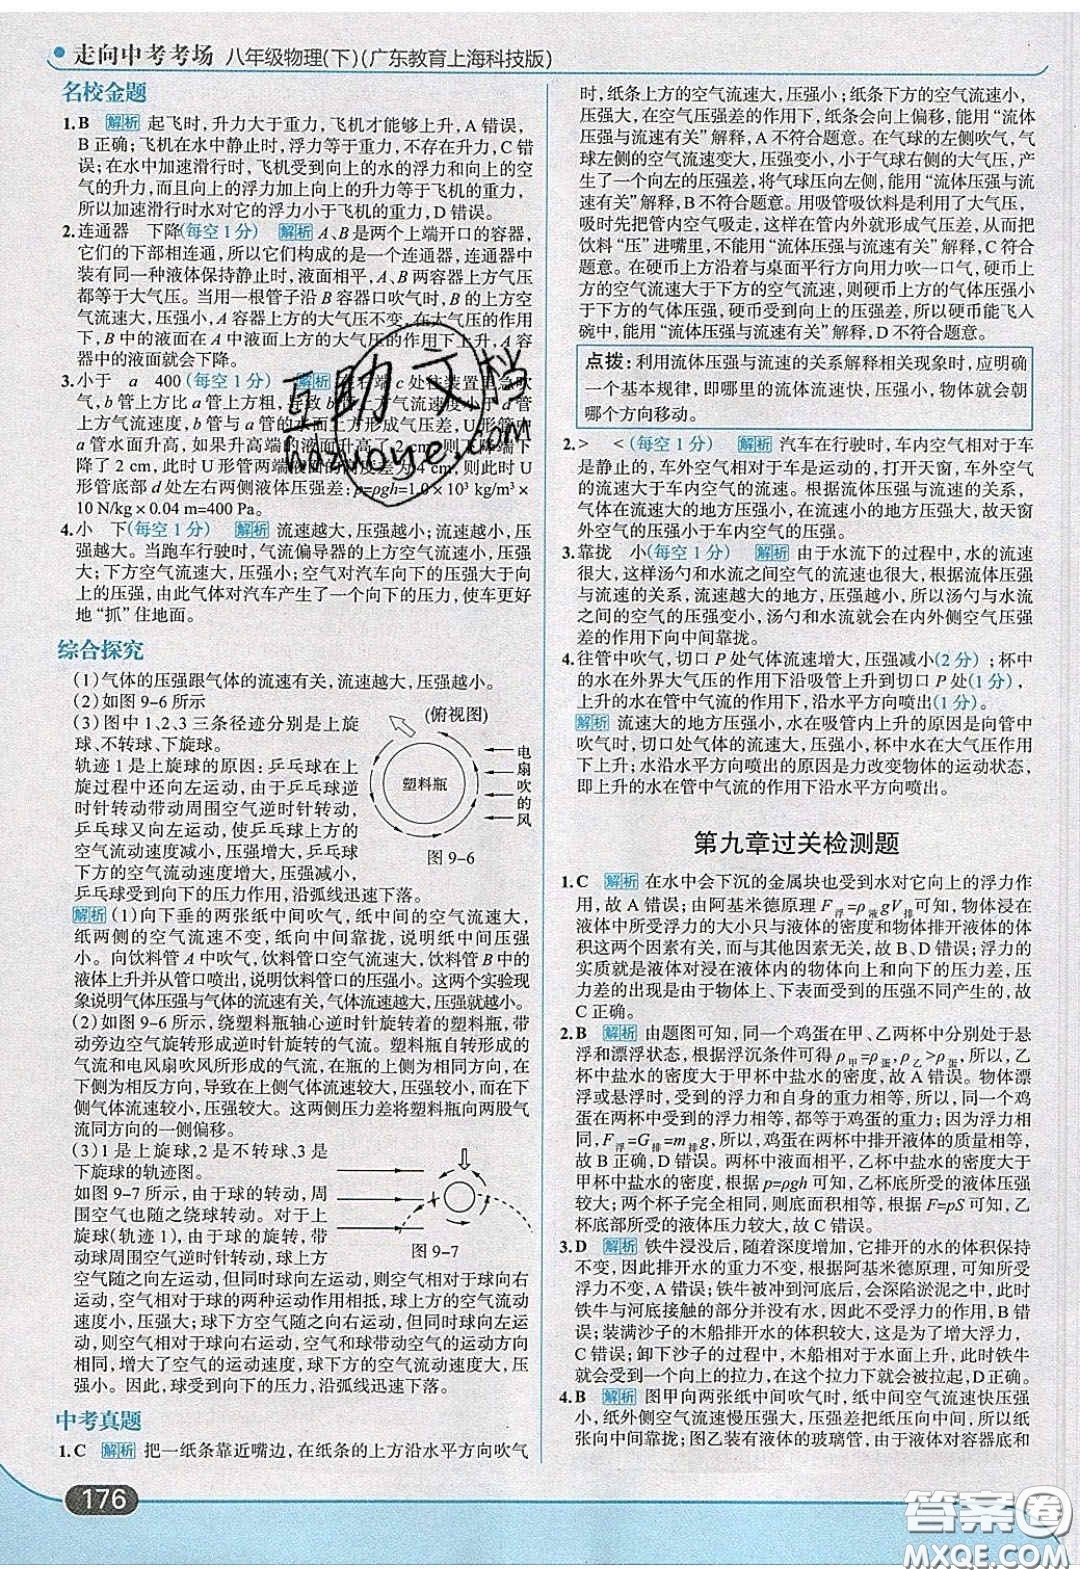 走向中考考场 八年级物理(下)(广东教育上海科技版)
名校金题
1.B 解析 起飞时,升力大于重力,飞机才能够上升,A 错误,
B 正确;飞机在水中静止时,浮力等于重力,不存在升力,C 错
误;在水中加速滑行时,飞机受到向上的水的浮力和向上的空
气的升力,而且向上的浮力加上向上的升力等于飞机的重力,
所以加速滑行时水对它的浮力小于飞机的重力,D 错误。
2.连通器 下降(每空 1 分) 解析 A、B 是两个上端开口的容器,
它们的下部相连通,所以它们构成的是一个连通器,连通器中
装有同一种液体保持静止时,液面相平,A、B 两容器上方气压
都等于大气压。当用一根管子沿 B 容器口吹气时,B 的上方空
气流速大,压强小,A 容器上方的大气压不变,在大气压的作用
下,B 中的液面在 A 上方大气压的作用下上升,A 容
器中的液面就会下降。
3.小于 a 400 (每空 1 分) 解析 在右端 c 处往装置里急吹
气,b 管上方比 a 管上方粗,导致 b 管上方气流速度小于 a 管
上方气流速度,b 管与 a 管的水面上方形成气压差,
a 管水面升高,如果升高端的液面升高了 2 cm,则下降端下
降了 2 cm,此时 U 形管两端液面的高度差为 4 cm,则此时 U
形管底部 d 处左右两侧液体压强差:p=ρgh=1.0×10³ kg/m³×
10 N/kg×0.04 m=400 Pa。
4.小 下(每空 1 分) 解析 流速越大,压强越小;流速越小,压
强越大。当跑车行驶时,气流偏导器的上方空气流速小,压强
大;下方空气流速大,压强小;空气对汽车向下的压强大于向
上的压强,由此气体对汽车产生了一个向下的压力,使车更好
地“抓”住地面。
综合探究
(1)气体的压强跟气体的流速有关,流速越大,压强越小。
(2)如图 9-6 所示
(3)图中 1、2、3 三条径迹分别是上旋
球、不转球、下旋球。
轨迹 1 是上旋球的原因:乒乓球在上
旋过程中还向左运动,由于乒乓球逆
时针转动带动周围空气逆时针转动,
乒乓球又向左运动,使乒乓球上方的
空气流动速度减小,压强增大,乒乓球
下方的空气流动速度增大,压强减小,
乒乓球受到向下的压力作用,沿弧线迅速下落。
(俯视图)
塑料瓶
电扇吹的风
图 9-6
解析 (1)向下垂的两张纸中间吹气,纸中间的空气流速大,
纸两侧的空气流速不变,纸向中间靠拢,说明纸中间压强
小。向饮料管 A 中吹气,饮料管口空气流速大,饮料管 B 中的
液体上升并从管口喷出,说明饮料管口的压强小。这两个实验现
象说明气体压强与气体的流速有关,气体流速越大,压强越小。
(2)如图 9-6 所示,绕塑料瓶轴心逆时针旋转着的塑料瓶,带
动旁边空气旋转形成逆时针旋转的气流。塑料瓶自转形成的
气流和电风扇吹风所形成的气流,在瓶的上侧为相同方向,在
下侧为相反方向,导致在上侧风速较大,压强较小,而在下
侧风速较小,压强较大。这两侧压力差将塑料瓶向两股气
流同方向的一侧偏移。
(3)1 是上旋球,2 是不转球、3 是
下旋球的轨迹图。
如图 9-7 所示,由于球的转动,周
围空气也随之绕球转动。对于上
旋球(轨迹 1),由于球的旋转,带
动球周围空气逆时针转动,球上方
空气随之向左运动,但同时球向左运动,空气相对于球向右
运动,空气相对于球的两种运动作用相抵,球上方的空气流动
速度小,压强大;球下方空气随之向右运动,但同时球向左运
动,则空气相对于球向右运动,空气和球带动空气的运动方向
相同,增大了空气的运动速度,球下方的空气流动速度大,压
强小。因此,球受到向下的压力,沿弧线迅速下落。
图 9-7
中考真题
1.C 解析 把一纸条靠近嘴边,在纸条的上方沿水平方向吹气
时,纸条上方的空气流速大,压强小;纸条下方的空气流速小,
压强大,在空气压强差的作用下,纸条会向上偏移,能用“流体
压强与流速有关”解释,A 不符合题意。在气球的左侧吹气,气
球左侧的空气流速变大,压强变小,小于气球右侧的大气压,产
生了一个向左的压强差,将气球压向左侧,能用“流体压强与流
速有关”解释,B 不符合题意。用吸管吸饮料是利用了大气压,
吸时先把管内空气吸走,这样在管内外就形成气压差,从而把
饮料“压”进嘴里,不能用“流体压强与流速有关”解释,C 符合
题意。在硬币上方沿着与桌面平行方向用力吹一口气,硬币上
方的气体流速大于下方的气体流速,则硬币上方的气体压强小
于下方的气体压强,硬币受到向上的压强差,所以硬币能飞入
碗中,能用“流体压强与流速有关”解释,D 不符合题意。
点拨:利用流体压强与流速的关系解释相关现象时,应明确
一个基本规律,即哪里的流体流速快,压强小,物体就会朝
哪个方向移动。
2.> <(每空 1 分) 解析 汽车在行驶时,车内空气相对于车
是静止的,车外空气相对于车是运动的,打开天窗,车外空气
的流速大于车内空气的流速。根据流体压强与流速的关系,
气体在流速大的地方压强小,在流速小的地方压强大,故天窗
外空气的压强小于车内空气的压强。
3.靠拢 小(每空 1 分) 解析 由于水流下的过程中,水的流速
很大,这样汤勺和水流之间空气的流速也很大,根据流体压强
与流速的关系,流速越大的地方,压强越小,所以汤勺与水流
之间的空气的压强变小,汤勺和水流就会在内外侧空气压强
差的作用下向中间靠拢。
4.往管中吹气,切口 P 处气体流速增大,压强减小(2 分);杯中
的水在外界大气压的作用下沿吸管上升到切口 P 处(1 分),
上升的水在管中气流的作用下,沿水平方向喷出(1 分)。
解析 流速大的地方压强小,水在吸管内上升的原因是向管中
吹气时,切口处气体流速大,压强小,杯中水在大气压的作用
下上升;水沿水平方向喷出的原因是力改变物体的运动状态,
即上升的水在管中气流的作用下沿水平方向喷出。
第九章过关检测题
1.C 解析 在水中会下沉的金属块也受到水对它向上的浮力作
用,故 A 错误;由阿基米德原理 F浮=ρ液gV排可知,物体浸在
液体中所受的浮力的大小只与液体的密度和物体排开液体的体
积这两个因素有关,而与其他因素无关,故 B、D 错误;浮力的
实质就是液体对浸在液体内的物体向上和向下的压力差,而
压力差的出现是由于物体上、下表面受到的压强不同产生的,故
C 正确。
2.B 解析 由题图可知,同一个鸡蛋在甲、乙两杯中分别处于悬
浮和漂浮状态,根据浮沉条件可得 ρ甲=ρ蛋,ρ乙>ρ蛋,所以,乙
杯中盐水的密度大于甲杯中盐水的密度,故 A 错误。物体漂
浮或悬浮时,受到的浮力和自身的重力相等,所以,同一个鸡
蛋在两杯中受到的浮力相等,都等于鸡蛋的重力;因为浮力相
同,F浮=G排=m排g,所以,鸡蛋在两杯中排开液体的质量相等,
故 B 正确,D 错误。两杯中液面相平,乙杯中盐水的密度大于
甲杯中盐水的密度,根据 p=ρgh 可知,乙杯底所受的液体压强
较大;两个杯子完全相同,则底面积相同,根据 F=pS 可知,乙
杯底部所受的液体压力较大,故 C 错误。
3.D 解析 铁牛浸没后,随着深度增加,它排开的水的体积保持
不变,因此浮力大小不变,根据阿基米德原理,可知铁牛所受
浮力不变,A 错误;铁牛被冲到河底后,会深陷淤泥之中,此时
铁牛与河底接触的部分并没有受到水的压力的作用,B 错
误;装满沙子的木船排开水的体积较大,这是为了增大浮力,
C 错误;卸下沙子的过程中,木船相对于水面上升,所以铁牛
就会受到较大的拉力,在这个拉力下就会被拉起,D 正确。
4.B 解析 图甲向两张纸中间吹气时,纸中间空气流速快压强
小,纸外侧空气流速慢压强大,压强差把纸压向中间,所以纸
张向中间靠拢;图乙装有液体的玻璃管,由于液体对容器底和
176
互助文档
huzuoye.com
答案圈
MXQE.COM